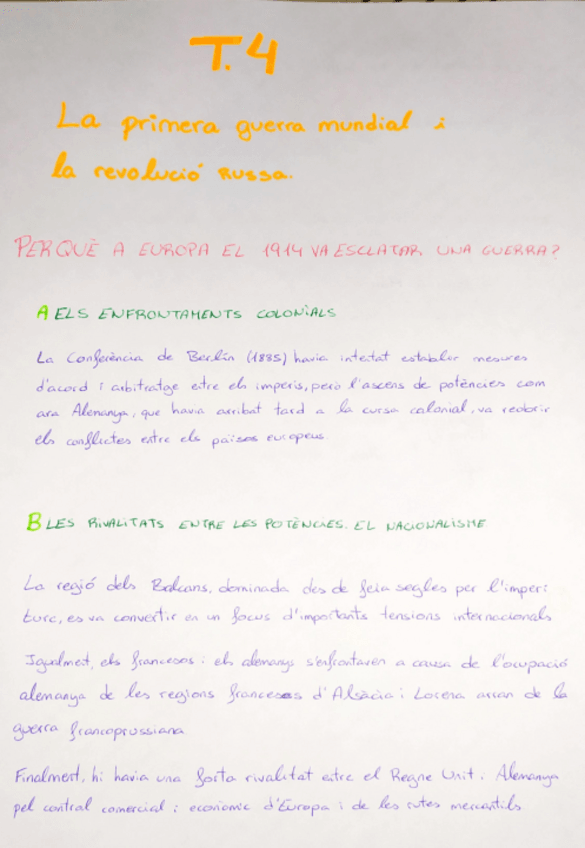 T.4
La primera guerra mundial i
la revolució Russa.
PERQUÈ A EUROPA EL 1914 VA ESCLATAR UNA GUERRA?
A ELS ENFRONTAMENTS COLONIALS
La Conferència de Berlín (1885) havia intetat establir mesures
d'acord i arbitratge etre els imperis, però l'ascens de potències com
ara Alemanya, que havia arribat tard a la cursa colonial, va reobrir
els conflictes entre els països europeus.
B LES RIVALITATS ENTRE LES POTÈNCIES. EL NACIONALISME
La regió dels Balcans, dominada des de feia segles per l'imperi
turc, es va convertir en un focus d'importants tensions internacionals
Igualmet, els francesos i els alemanys s'enfrontaven a causa de l'ocupació
alemanya de les regions franceses d'Alsàcia i Lorena arran de la
guerra francoprussiana
Finalment, hi havia una forta rivalitat etre el Regne Unit i Alemanya
pel control comercial i econòmic d'Europa i de les rutes mercantils